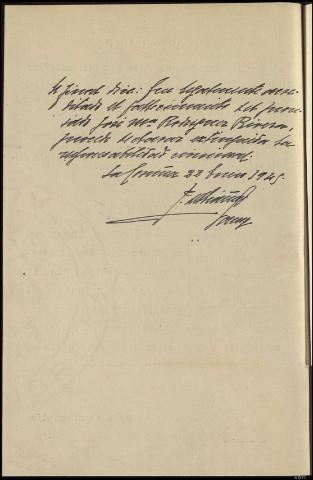 El Fiscal dice: Que legalmente acre-
ditado el fallecimiento del procesado
José Mª Rodriguez Rivera,
puede declararse extinguida la
responsabilidad criminal.
La Coruña 22 Enero 1945.